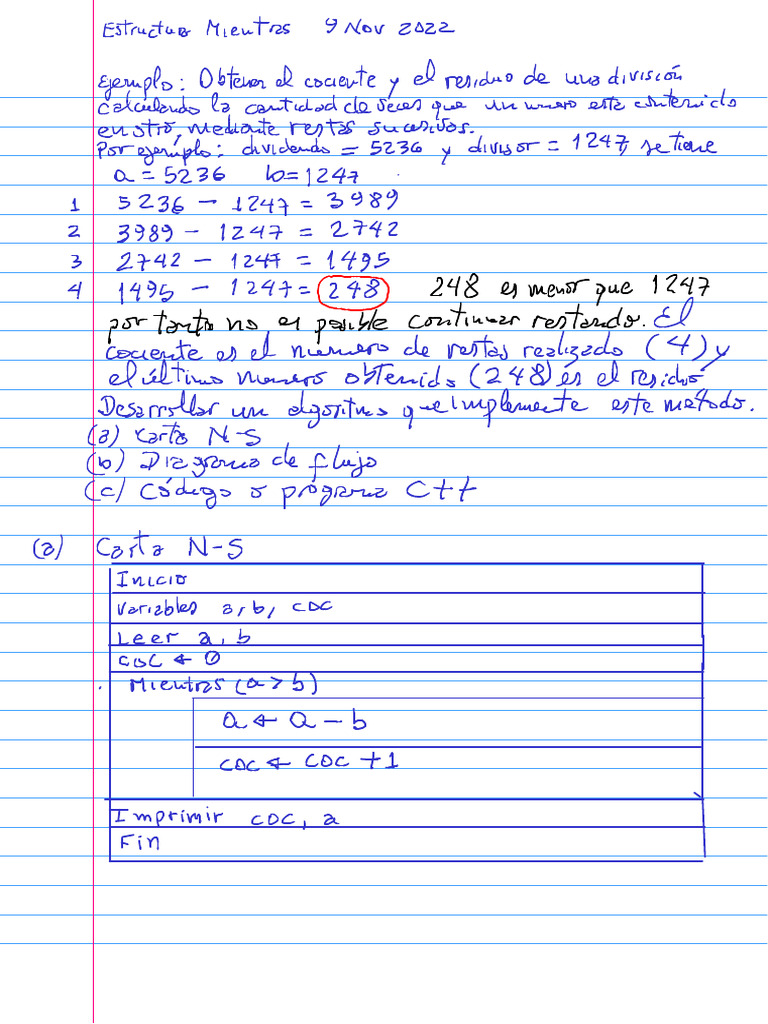 Estructura Mientras 9 Nov 2022
Ejemplo: Obtener el cociente y el residuo de una división
calculando la cantidad de veces que un numero esta contenido
en otro, mediante restas sucesivas.
Por ejemplo: dividendo = 5236 y divisor = 1247, se tiene
a = 5236 b = 1247
1 5236 - 1247 = 3989
2 3989 - 1247 = 2742
3 2742 - 1247 = 1495
4 1495 - 1247 = 248 248 es menor que 1247
por tanto no es posible continuar restando. El
cociente es el número de restas realizado (4) y
el último numero obtenido (248) es el residuo
Desarrollar un algoritmo que implemente este metodo.
(a) Carta N-S
(b) Diagrama de flujo
(c) Código o programa C++
(a) Carta N-S
Inicio
Variables a, b, coc
Leer a, b
coc ← 0
Mientras (a > b)
a ← a - b
coc ← coc + 1
Imprimir coc, a
Fin